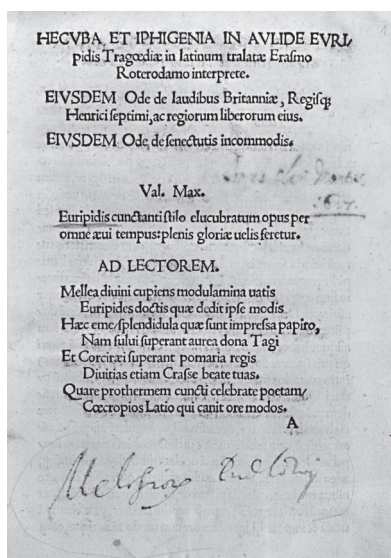 HECVBA, ET IPHIGENIA IN AVLIDE EVRI⸗
pidis Tragœdiæ in latinum tralatæ Erasmo
Roterodamo interprete.
EIVSDEM Ode de laudibus Britanniæ, Regisq;
Henrici septimi, ac regiorum liberorum eius.
EIVSDEM Ode, de senectutis incommodis.
Val. Max.
Euripidis cunctanti stilo elucubratum opus per
omne æui tempus: plenis gloriæ uelis feretur.
AD LECTOREM.
Mellea diuini cupiens modulamina uatis
Euripides doctis quæ dedit ipse modis
Hæc eme/splendidula quæ sunt impressa papiro,
Nam sului superant aurea dona Tagi
Et Corciræi superant pomaria regis
Diuitias etiam Crasse beate tuas.
Quare prothermem cuncti celebrate poetam/
Cœcropios Latio qui canit ore modos.
A